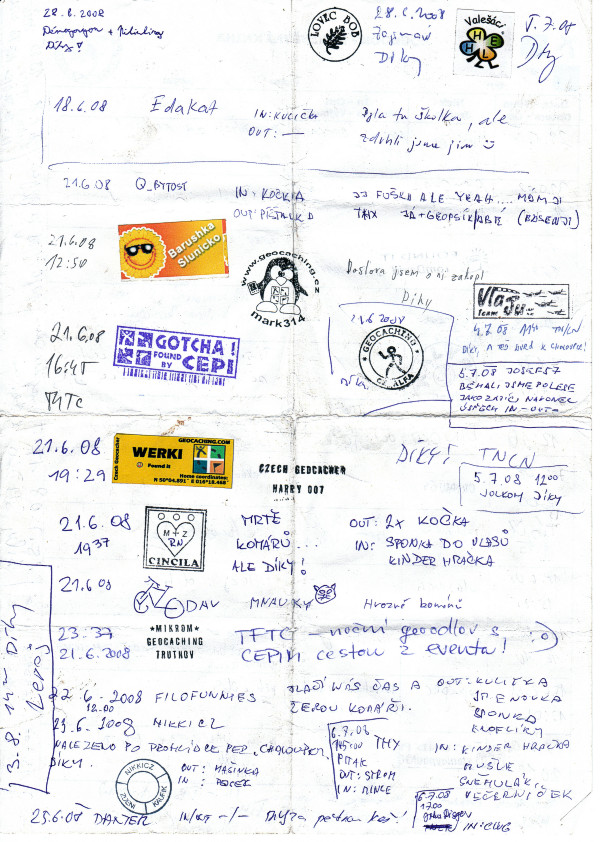 28.6.2008
Díky!
LOVEC BOB
28.6.2008
Zajímavé
Díky
Valešáci
HEHL
5.7.08
Díky
18.6.08 Edakat IN: KULIČKA
OUT: —
Byla tu školka, ale
zdrhli jsme jim
21.6.08 Q_BYTOST IN: KOČKA
OUT: PÍŠTALKA
JJ FUŠKA ALE YEAH.... MÁM JI
THX JÁ+GEOPSÍK
21.6.08
12:50
Barushka
Slunicko
www.geocaching.cz
mark314
Doslova jsem o ni zakopl
Díky
Vlaju
team
4.7.08 TNLN
21.6.08
16:47
TFTC
GOTCHA!
FOUND BY CEPI
21.6.2008
GEOCACHING
díky
5.7.08 JOSEF57
BĚHALI JSME POLESE
JAKO ZAJÍCI NAKONEC
ÚSPĚCH IN-OUT-0
21.6.08
19:29
Czech Geocacher
GEOCACHING.COM
WERKI
Found it
Home coordinates:
N 50°04.891' E 016°18.468'
CZECH GEOCACHER
HARRY 007
DÍKY! TNLN
5.7.08 12:00
JOLKOM DÍKY
21.6.08
19:37
M+Z
RN
CINCILA
MRTĚ
KOMÁRŮ...
ALE DÍKY!
OUT: 2x KOČKA
IN: SPONKA DO VLASŮ
KINDER HRAČKA
21.6.08 DAV MNAUKY Hrozně komárů
23:37
21.6.2008
*MIKROM*
GEOCACHING
TRUTNOV
TFTC – noční geoodlov s
CEPIM cestou z eventu! :o)
3.8. 14:00 Díky
22.6.2008 FILOFUNNIES
12:00
TLAČÍ NÁS ČAS A
ŽEROU KOMÁŘI.
OUT: KULIČKA
JMENOVKA
SPONKA
KNOFLÍKY
IN: KINDER HRAČKA
MUŠLE
SNĚHULÁK
VEČERNÍČEK
23.6.2008 NIKKICZ
NALEZENO PO PROHLÍDCE PER. CHALOUPKY.
DÍKY.
NIKKICZ
ZDENI
KALFIK
OUT: MAŠINKA
IN: PEJSEK
6.7.08
14:00 THX
PITAK
OUT: STROM
IN: MINCE
16.7.08
17:00
IN: CWG
25.6.08 DANTER IN/OUT -/-